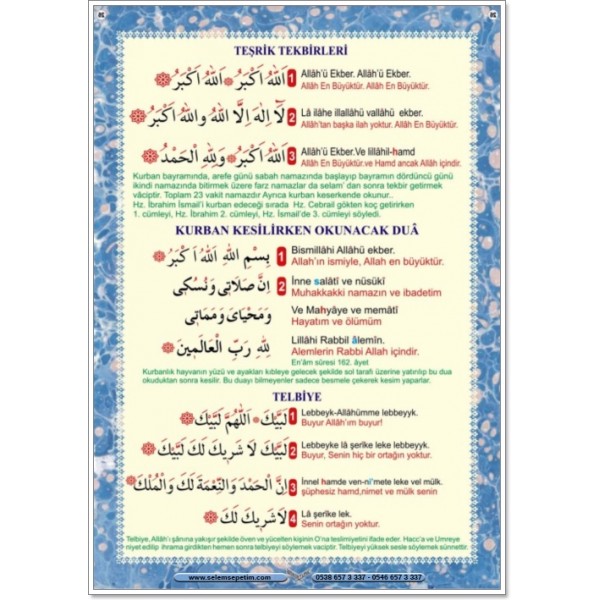 TEŞRİK TEKBİRLERİ
اَللّٰهُ اَكْبَرُ اَللّٰهُ اَكْبَرُ 1 Allâh'ü Ekber. Allâh'ü Ekber.
Allâh En Büyüktür. Allâh En Büyüktür.
لَٓا اِلٰهَ اِلَّا اللّٰهُ وَاللّٰهُ اَكْبَرُ 2 Lâ ilâhe illallâhü vallâhü ekber.
Allâh'tan başka ilah yoktur. Allâh En Büyüktür.
اَللّٰهُ اَكْبَرُ وَلِلّٰهِ الْحَمْدُ 3 Allâh'ü Ekber.Ve lillâhil-hamd
Allâh En Büyüktür.ve Hamd ancak Allâh içindir.
Kurban bayramında, arefe günü sabah namazında başlayıp bayramın dördüncü günü
ikindi namazında bitirmek üzere farz namazlar da selam' dan sonra tekbir getirmek
vâciptir. Toplam 23 vakit namazdır Ayrıca kurban keserkende okunur..
Hz. İbrahim İsmail'i kurban edeceği sırada Hz. Cebrail gökten koç getirirken
1. cümleyi, Hz. İbrahim 2. cümleyi, Hz. İsmail'de 3. cümleyi söyledi.
KURBAN KESİLİRKEN OKUNACAK DUÂ
بِسْمِ اللّٰهِ اَللّٰهُ اَكْبَرُ 1 Bismillâhi Allâhü ekber.
Allah'ın ismiyle, Allah en büyüktür.
اِنَّ صَلَاتِى وَنُسُكِى 2 İnne salâtî ve nüsükî
Muhakkakki namazın ve ibadetim
وَمَحْيَاىَ وَمَمَاتِى Ve Mahyâye ve memâtî
Hayatım ve ölümüm
لِلّٰهِ رَبِّ الْعَالَمِينَ Lillâhi Rabbil âlemîn.
Alemlerin Rabbi Allah içindir.
En'âm süresi 162. âyet
Kurbanlık hayvanın yüzü ve ayakları kıbleye gelecek şekilde sol tarafı üzerine yatırılıp bu dua
okuduktan sonra kesilir. Bu duayı bilmeyenler sadece besmele çekerek kesim yaparlar.
TELBİYE
لَبَّيْكَ اَللّٰهُمَّ لَبَّيْكَ 1 Lebbeyk-Allâhümme lebbeyyk.
Buyur Allâh'ım buyur!
لَبَّيْكَ لَا شَرِيكَ لَكَ لَبَّيْكَ 2 Lebbeyke lâ şerîke leke lebbeyk.
Buyur, Senin hiç bir ortağın yoktur.
اِنَّ الْحَمْدَ وَالنِّعْمَةَ لَكَ وَالْمُلْكَ 3 İnnel hamde ven-ni'mete leke vel mülk.
şüphesiz hamd,nimet ve mülk senin
لَا شَرِيكَ لَكَ 4 Lâ şerîke lek.
Senin ortağın yoktur.
Telbiye, Allah'ı şânına yakışır şekilde öven ve yücelten kişinin O'na teslimiyetini ifade eder. Hacc'a ve Umreye
niyet edilip ihrama girdikten hemen sonra telbiyeyi söylemek vaciptir. Telbiyeyi yüksek sesle söylemek sünnettir.
www.selemsepetim.com 0538 657 3 337 - 0546 657 3 337